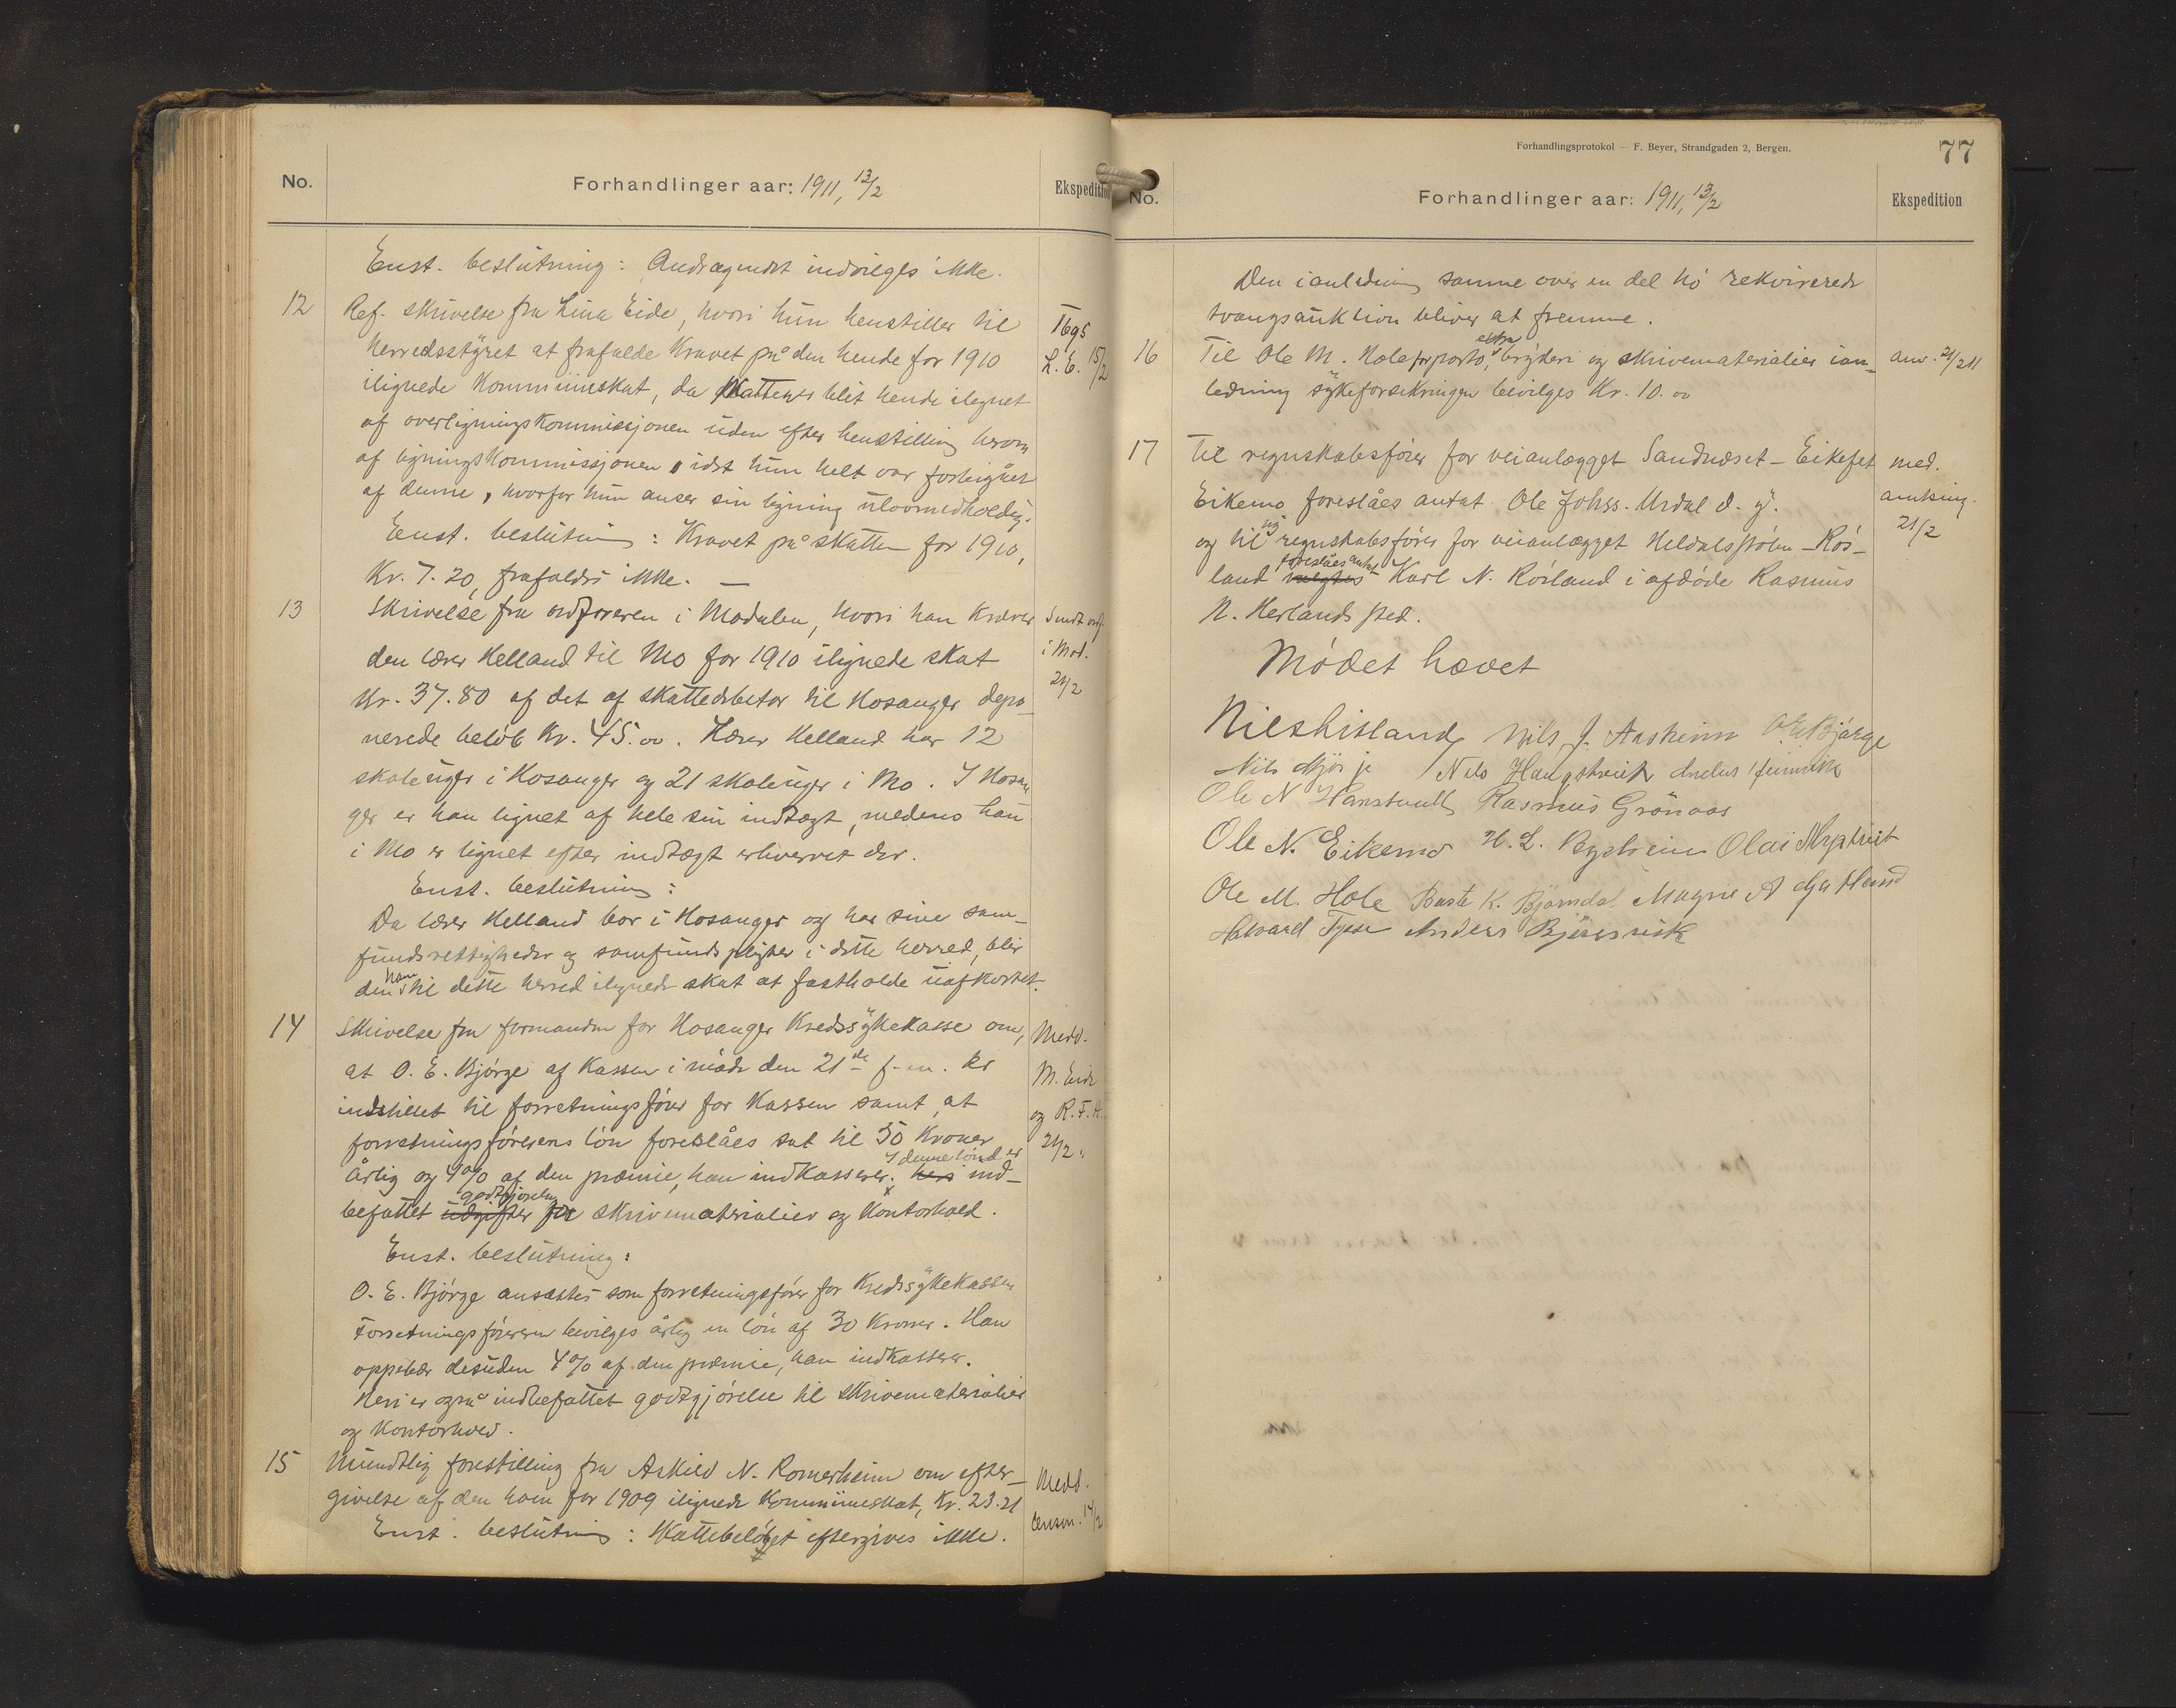 No.
Forhandlinger aar: 1911, 13/2
Ekspedition
Enst. beslutning: Andragendet indvilges ikke.
12 Ref. skrivelse fra Lina Eide, hvori hun henstiller til
herredsstyret at frafalde Kravet på den hende for 1910
ilignede Kommuneskat, da skatten er blit hende ilignet
af overligningskommissjonen uden efter henstilling herom
af ligningskommissjonen, idet hun helt var forbigået
af denne, hvorfor hun anser sin ligning ulovmedholdig.
L. E. 15/2
Enst. beslutning: Kravet på skatten for 1910,
Kr. 7.20, frafaldes ikke. —
13 Skrivelse fra ordføreren i Modalen, hvori han Kræver
den lærer Helland til Mo for 1910 ilignede skat
Kr. 37.80 af det af skattedebetor til Hosanger depo-
nerede beløb Kr. 45.00. Lærer Helland har 12
skoleuger i Hosanger og 21 skoleuger i Mo. I Hosan
ger er han lignet af hele sin indtægt, medens han
i Mo er lignet efter indtægt erhvervet der.
Sendt ordf.
i Mod.
21/2
Enst. beslutning:
Da lærer Helland bor i Hosanger og har sine sam-
fundsrettigheder og samfundspligter i dette herred, blir
den ham til dette herred ilignede skat at fastholde uafkortet.
14 Skrivelse fra formanden for Hosanger Kredssykekasse om,
at O. E. Bjørge af Kassen i møde den 21de f. m. er
indstillet til forretningsfører for Kassen samt, at
forretningsførerens løn foreslåes sat til 30 Kroner
årlig og 4% af den præmie, han indkasserer. heri I denne lønd er ind-
befattet udgifter for godtgjørelse skrivematerialier og Kontorhold.
Medd.
M. Eide
og R. F. H.
21/2.
Enst. beslutning:
O. E. Bjørge ansættes som forretningsfører for Kredssykekassen
Forretningsføreren bevilges årlig en løn af 30 Kroner. Han
oppebær desuden 4% af den præmie, han indkasserer.
Heri er også indbefattet godtgjørelse til skrivematerialier
og Kontorhold.
15 Mundtlig forestilling fra Askild N. Romerheim om efter-
givelse af den ham for 1909 ilignede Kommuneskat, Kr. 23.21
Enst. beslutning: Skattebeløbet eftergives ikke.
Medd.
lensm. 17/2
Forhandlingsprotokol — F. Beyer, Strandgaden 2, Bergen.
77
No.
Forhandlinger aar: 1911, 13/2
Ekspedition
Den i anledning samme over en del hø rekvirerede
tvangsauktion bliver at fremme.
16 Til Ole M. Hole for porto, ekstra bryderi og skrivematerialier i an-
ledning sykeforsikringen bevilges Kr. 10.00
anv. 21/2 11
17 Til regnskabsfører for veianlægget Sandnæset - Eikefet
Eikemo foreslåes antat Ole Johss. Urdal d. y.
og til ny regnskabsfører for veianlægget Heldalspollen - Rös-
land vælges foreslåes antat Karl N. Rösland i afdöde Rasmus
N. Herlands sted.
med.
amtsing.
21/2
Mödet hævet
Nils Nils J. Aasheim O. E. Bjørge
Nils Mjös jr Nils Haugstvedt
Ole N Rasmus Grönaas
Ole N. Eikemo H. L. Olai
Ole M. Hole K. Björndal Magne A
Halvard Anders